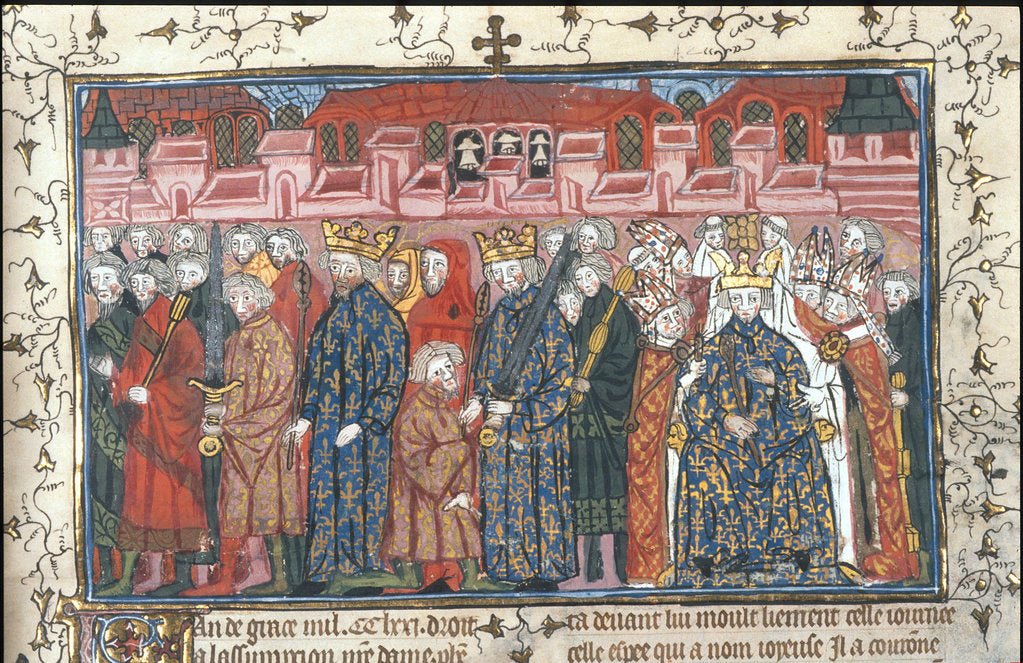 An de grace mil.CC lxxi.droit
a lassumpcion nre dame.phe
ca deuant lui moult liement celle iournee
celle espee qui a nom ioyeuse Il a couronne